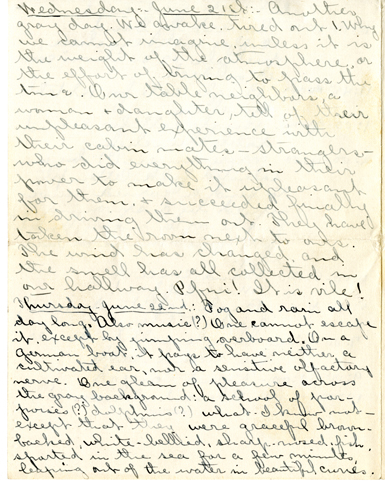 Wednesday, June 21st:- Another
gray day. We awake tired out! Why
we cannot imagine, unless it is
the weight of the atmosphere, or
the effort of trying to pass the
time. Our table neighbors, a
woman & daughter, tell of their
unpleasant experience with
their cabin mates - strangers -
who did everything in their
power to make it unpleasant
for them, & succeeded finally
in driving them out. They have
taken the room next to ours.
The wind has changed and
the smell has all collected in
our hallway. Pfui! It is vile!
Thursday, June 22nd: Fog and rain all
day long. Also music(?) One cannot escape
it, except by jumping overboard. On a
german boat, it pays to have neither a
cultivated ear, nor a sensitive olfactory
nerve. One gleam of pleasure across
the gray background: a school of por-
poises(?) dolphins(?) what I know not -
except that they were graceful brown-
backed, white-bellied, sharp-nosed fish,
sported in the sea for a few minutes,
leaping out of the water in beautiful curves.